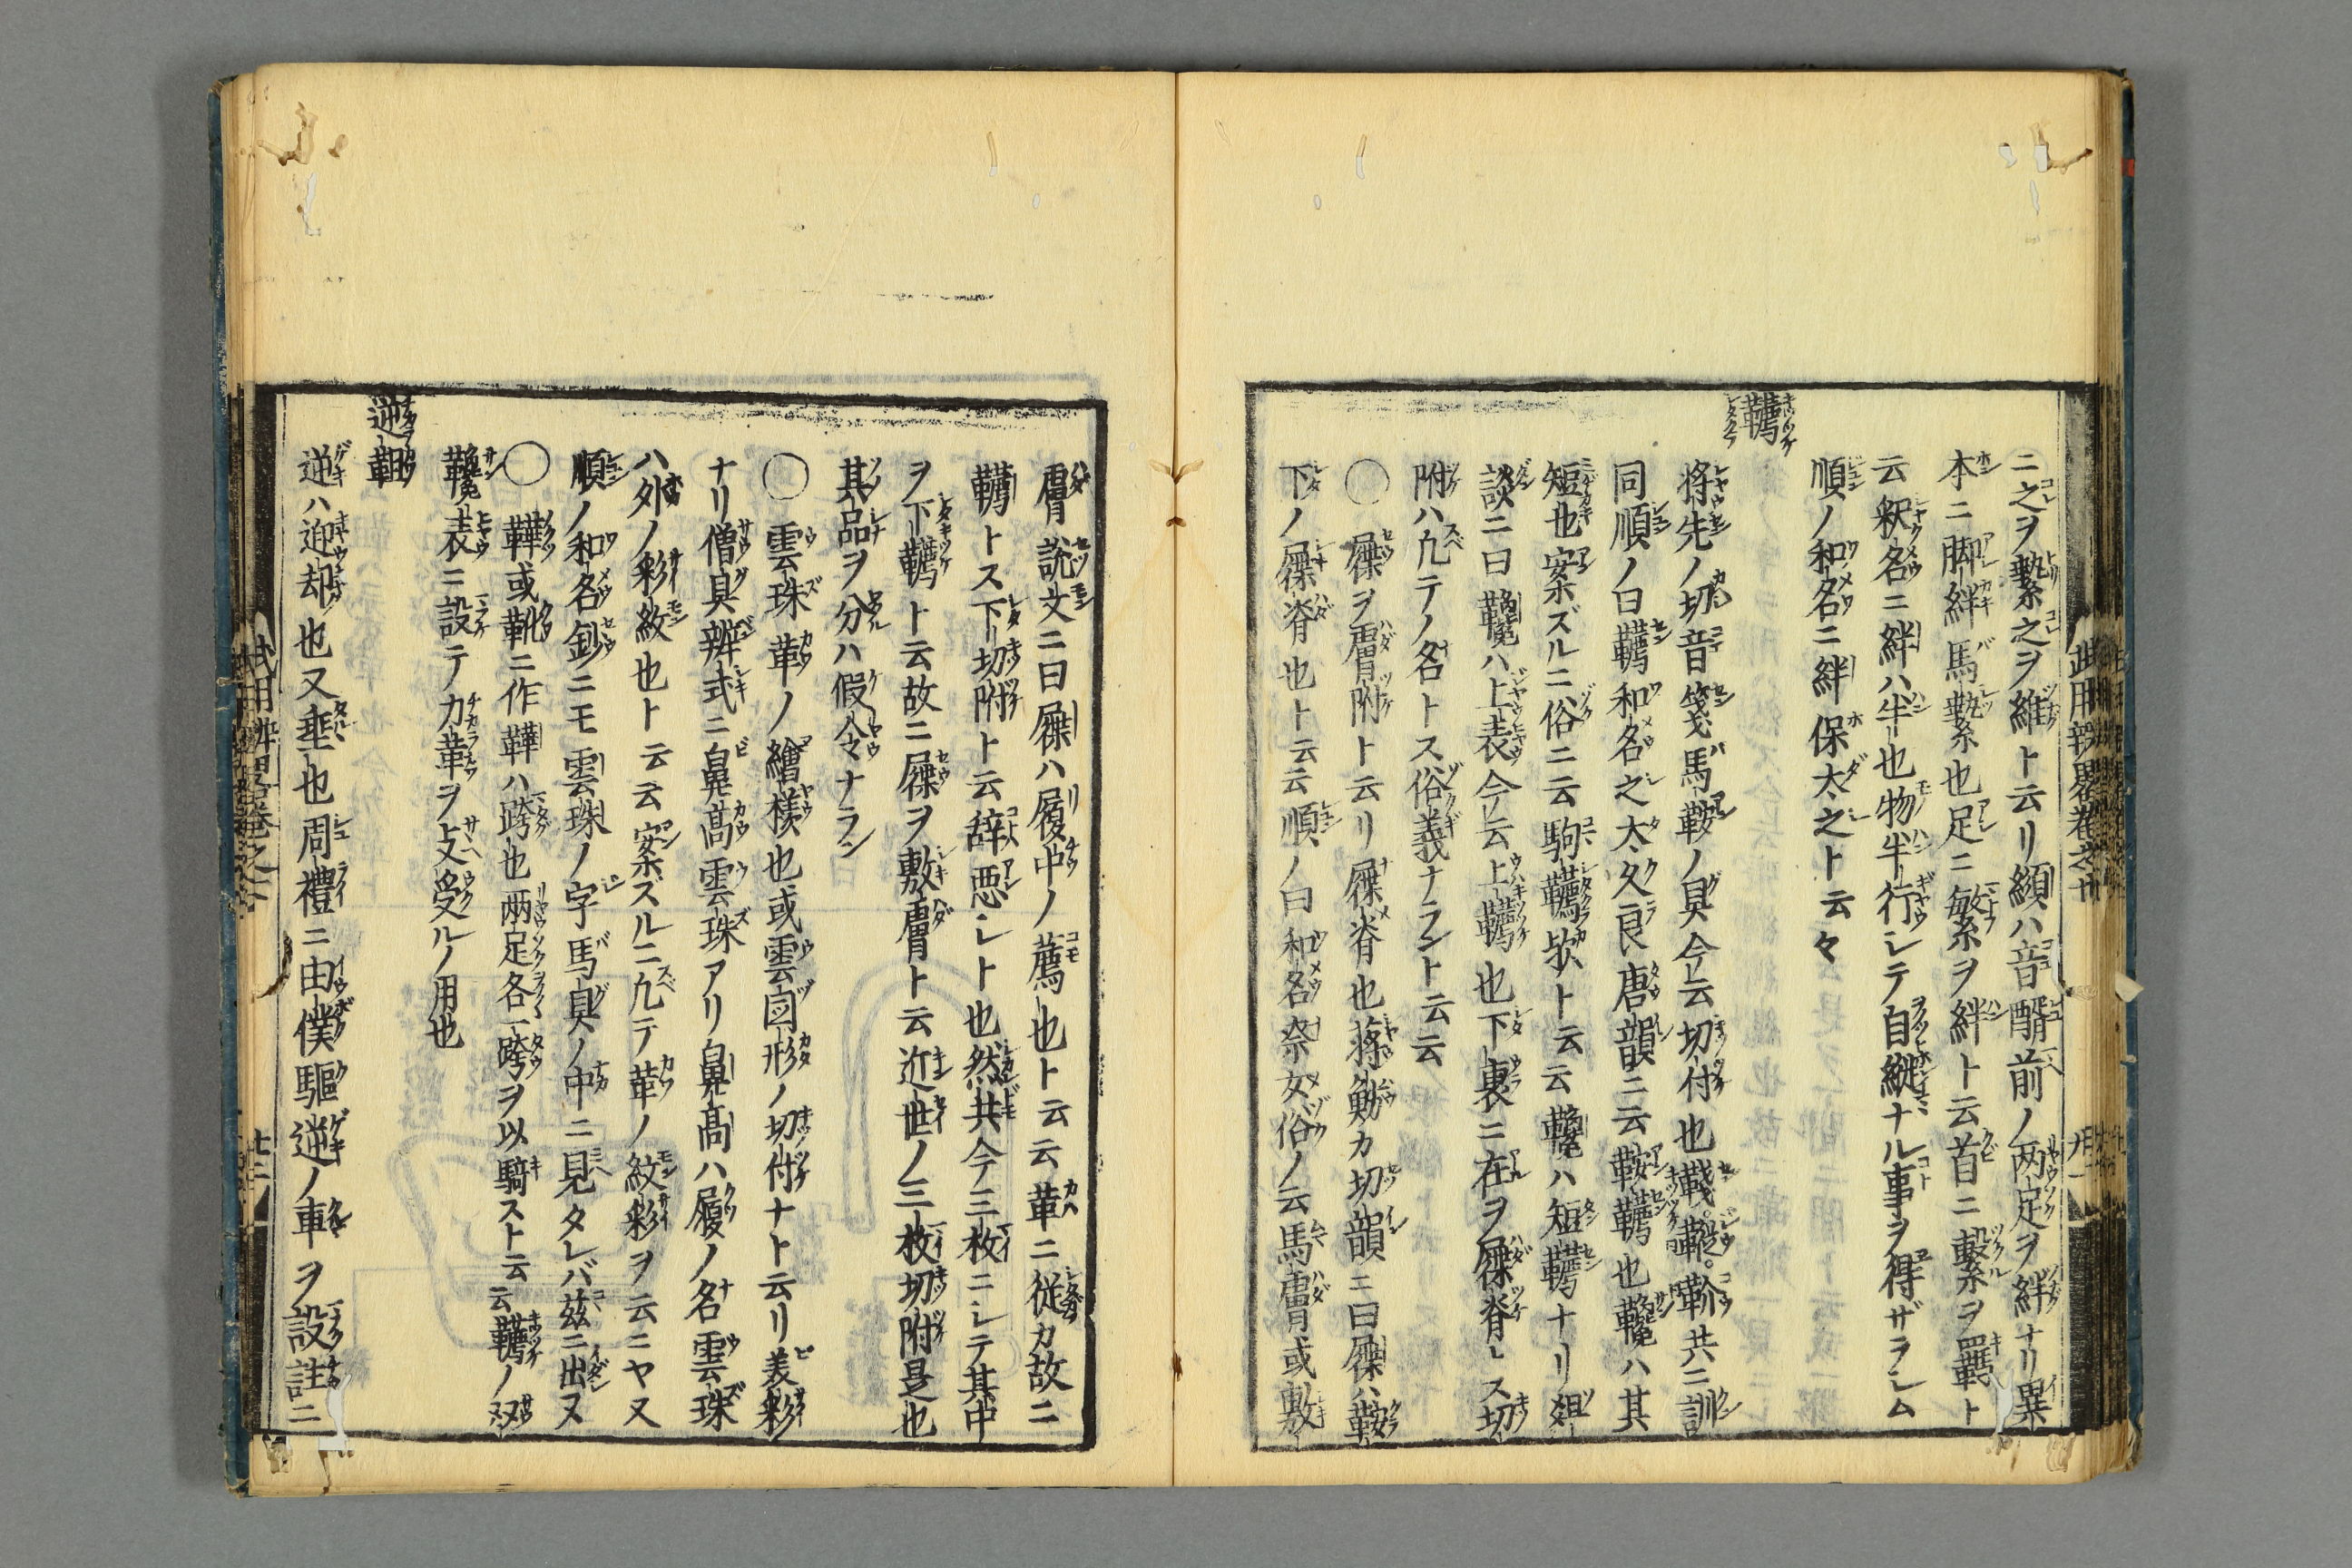 ニ之ヲ縶之ヲ維ト云リ纐ハ音醑前ノ两足ヲ絆ナリ異
本ニ脚絆馬縶也足ニ繁ヲ絆ト云首ニ繫ヲ羈ト
云釈名ニ絆ハ半也物半行シテ自縦ナル事ヲ得ザラシム
順ノ和名ニ絆保太之ト云々
韉
将先ノ切音箋馬鞍ノ具今云切付也共ニ訓
同順ノ曰韉和名之太久良唐韻ニ云鞍韉也ハ其
短也案ズルニ俗ニ云駒韉欤ト云云ハ短韉ナリ
談ニ曰ハ上表今云上韉也下裏ニ在ヲ屧脊トス切
附ハ凢テノ名トス俗義ナラント云云
○屧ヲ膚附ト云リ屧脊也蒋魴カ切韻ニ曰屧ハ鞍
下ノ屧脊也ト云云順ノ曰和名奈女俗ノ云馬膚或敷
膚説文ニ曰屧ハ履中ノ薦也ト云云革ニ従カ故ニ
韉トス下切附ト云辞悪シト也然共今三枚ニシテ其中
ヲ下韉ト云故ニ屧ヲ敷膚ト云近世ノ三枚切附是也
其品ヲ分ハ假令ナラン
○雲珠革ノ繪様也或雲図形ノ切付ナト云リ美彩
ナリ僧具辨式ニ鼻高雲珠アリ鼻高ハ履ノ名雲珠
ハ外ノ彩紋也ト云云案ズルニ凢テ革ノ紋彩ヲ云ニヤ又
順ノ和名鈔ニモ雲珠ノ字馬具ノ中ニ見タレバ茲ニ出ヌ
○鞾或靴ニ作鞾ハ跨也两足各一跨ヲ以騎スト云云韉ノ
表ニ設テ力革ヲ受ルノ用也
逆靼
逆ハ迎却ノ也又埀也周禮ニ田僕驅逆ノ車ヲ設註ニ